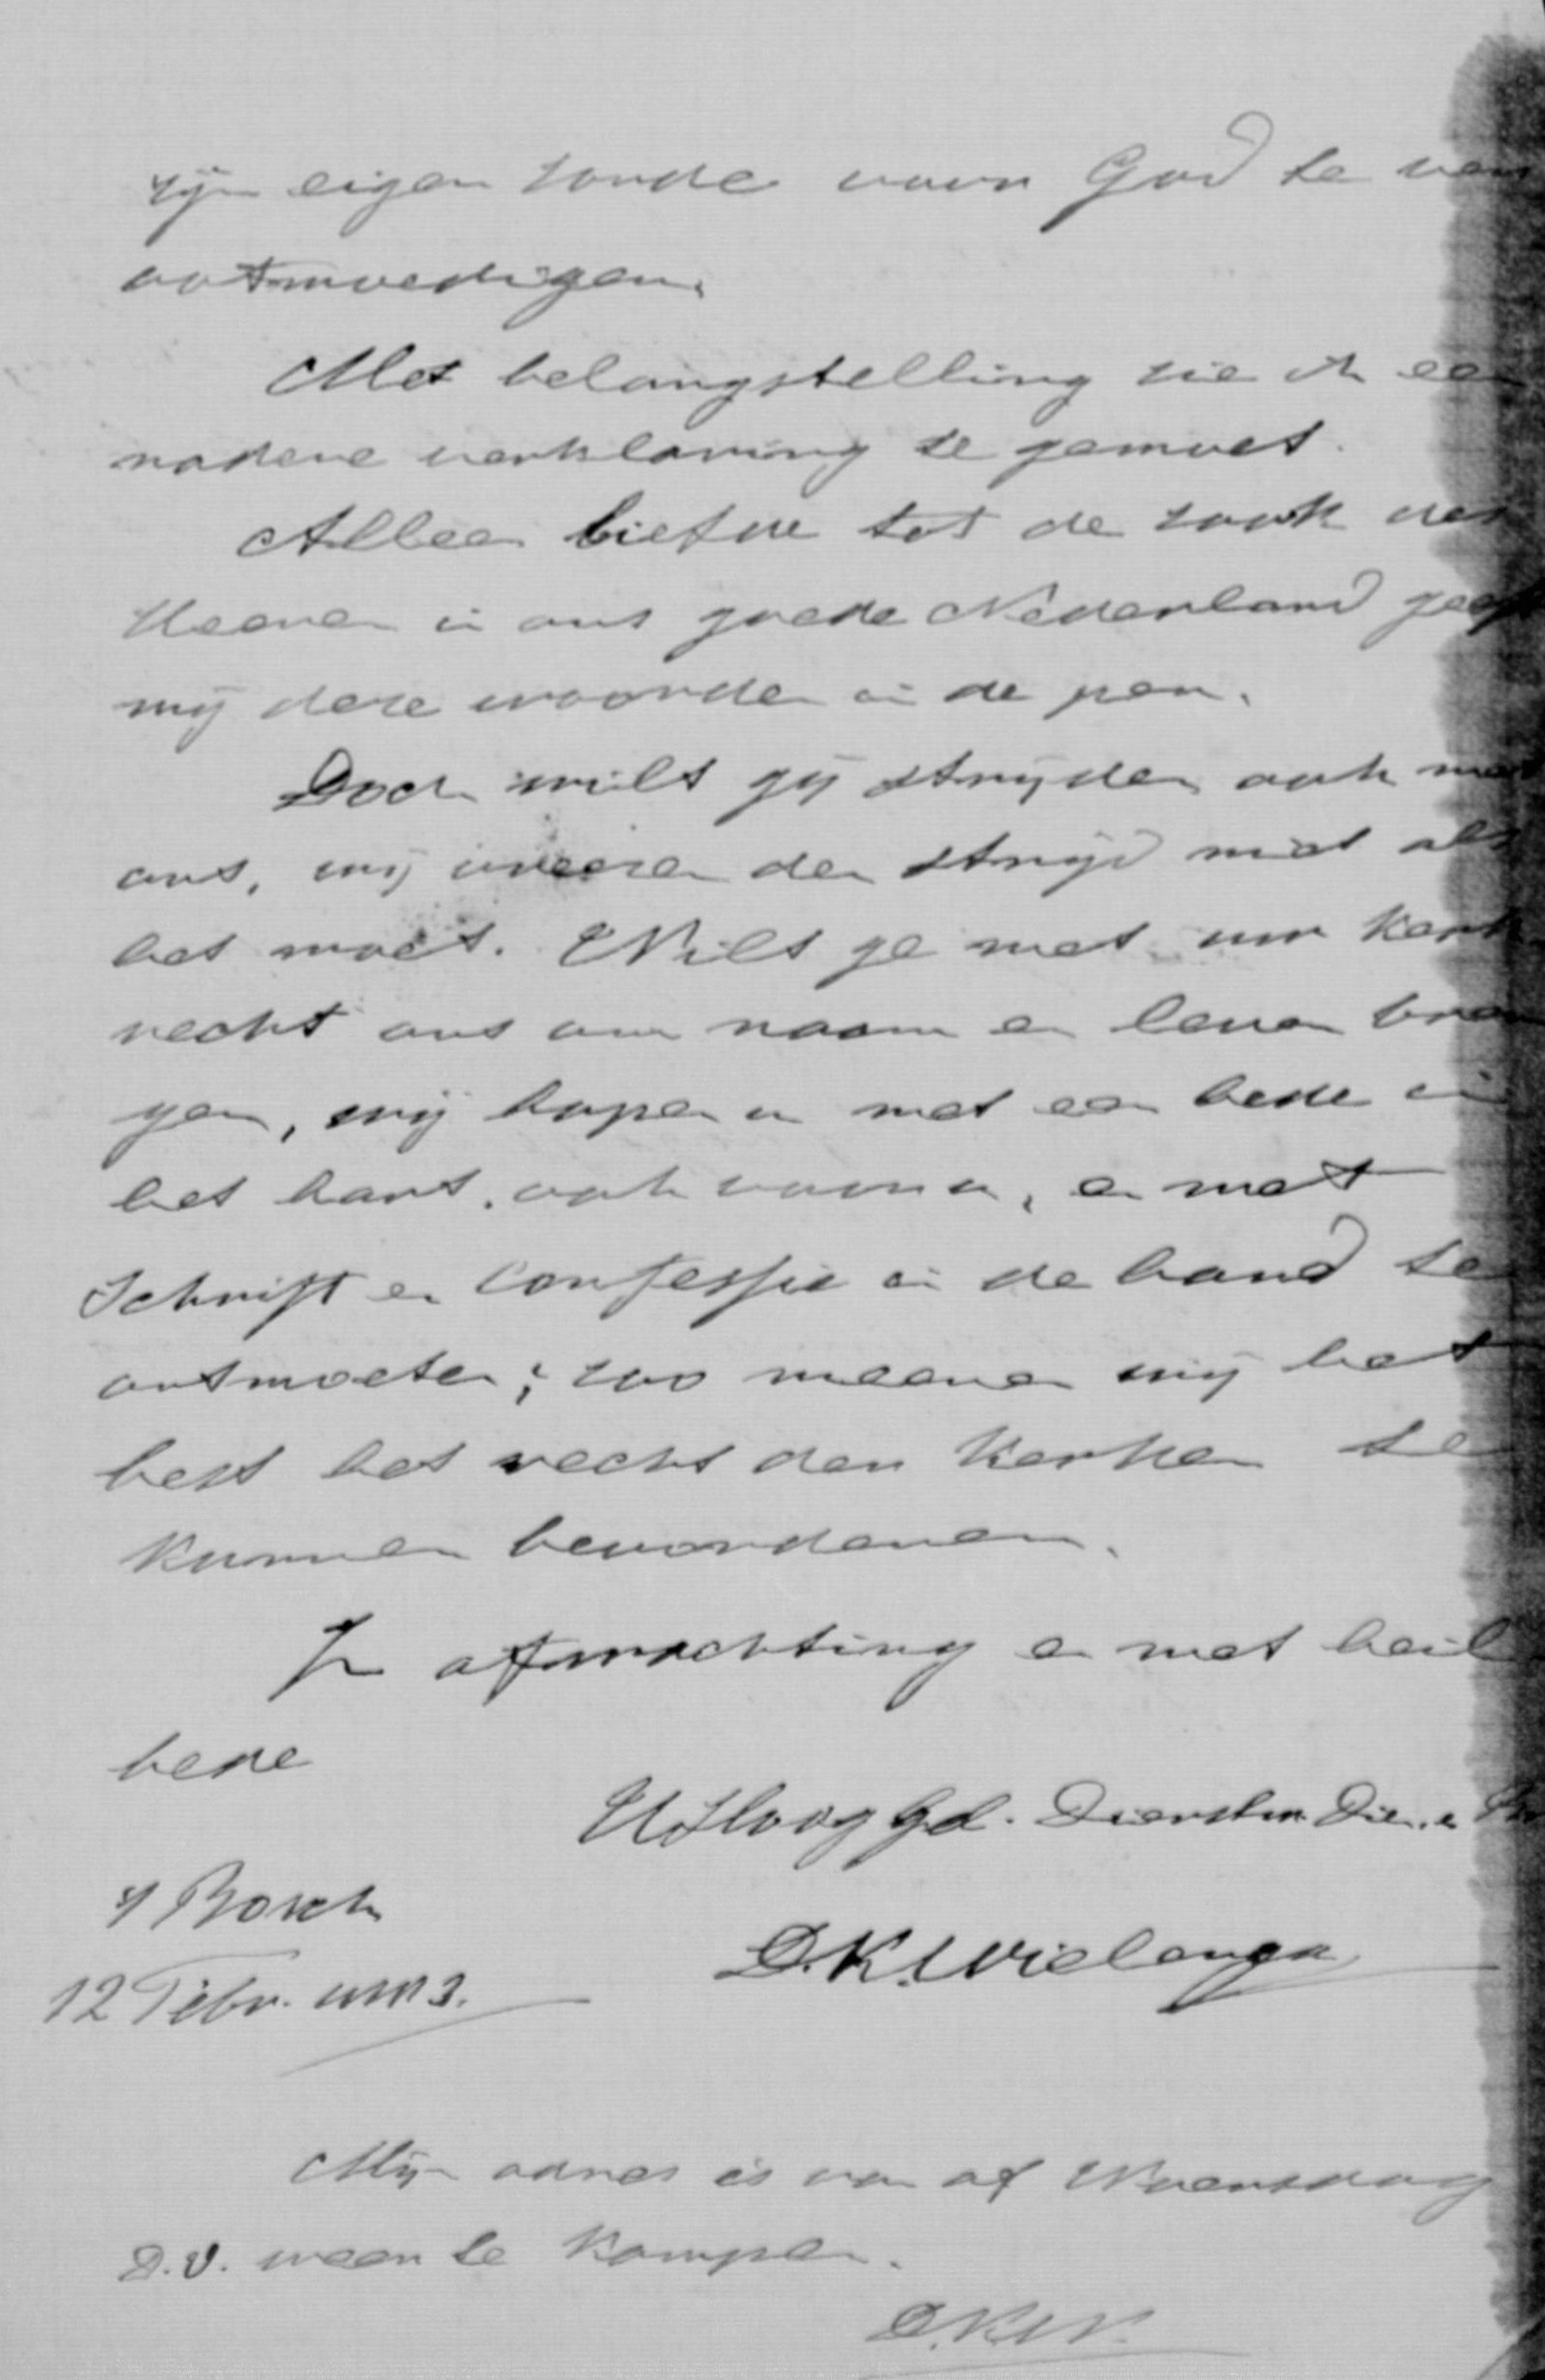 zijn eigen zonde voor God te ver
ootmoedigen.
Met belangstelling zie ik een
nadere verklaring te gemoet.
Alleen liefde tot de zaak des
Heeren in ons goede Nederland geeft
mij deze woorden in de pen.
Doch wilt gij strijden ook met
ons, wij vreezen den strijd niet als
het moet. Wilt ge met uw Kerk
recht ons om naam en leven bren
gen, wij hopen u met een bede in
het hart, ook voor u, en met
Schrift en Confessie in de hand te
ontmoeten; zoo meenen wij het
best het recht der Kerken te
kunnen bevorderen.
In afwachting en met heil
bede
UHoogGel. Dienstw. Dien. en
's Bosch
D.K. Wielenga
12 Febr. 1883.
Mijn adres is van af Woensdag
D.V. weer te Kampen.
D.K.W.